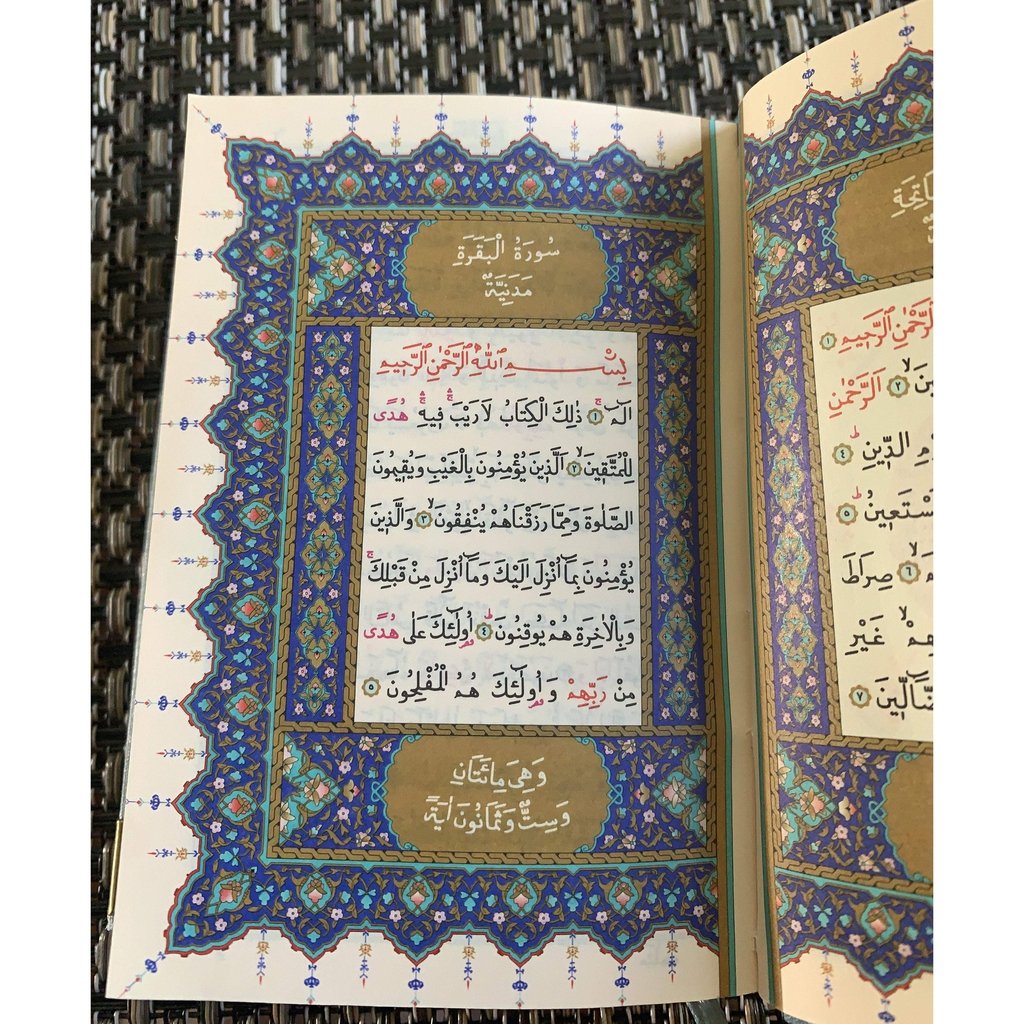 فَاتِحَةِ
الرَّحْمٰنِ الرَّحِيمِ ١
ينَ ٢ اَلرَّحْمٰنِ
مِ الدِّينِ ٤
نَسْتَعِينُ ٥
٦ صِرَاطَ
هِمْ غَيْرِ
الضَّالِّينَ ٧
سُورَةُ الْبَقَرَةِ
مَدَنِيَّةٌ
بِسْمِ اللّٰهِ الرَّحْمٰنِ الرَّحِيمِ
الٓمٓ ١ ذٰلِكَ الْكِتَابُ لَا رَيْبَ فِيهِ هُدًى
لِلْمُتَّقِينَ ٢ اَلَّذِينَ يُؤْمِنُونَ بِالْغَيْبِ وَيُقِيمُونَ
الصَّلٰوةَ وَمِمَّا رَزَقْنَاهُمْ يُنْفِقُونَ ٣ وَالَّذِينَ
يُؤْمِنُونَ بِمَٓا اُنْزِلَ اِلَيْكَ وَمَٓا اُنْزِلَ مِنْ قَبْلِكَ
وَبِالْاٰخِرَةِ هُمْ يُوقِنُونَ ٤ اُولٰٓئِكَ عَلٰى هُدًى
مِنْ رَبِّهِمْ وَاُولٰٓئِكَ هُمُ الْمُفْلِحُونَ ٥
وَهِيَ مِائَتَانِ
وَسِتٌّ وَثَمَانُونَ اٰيَةً